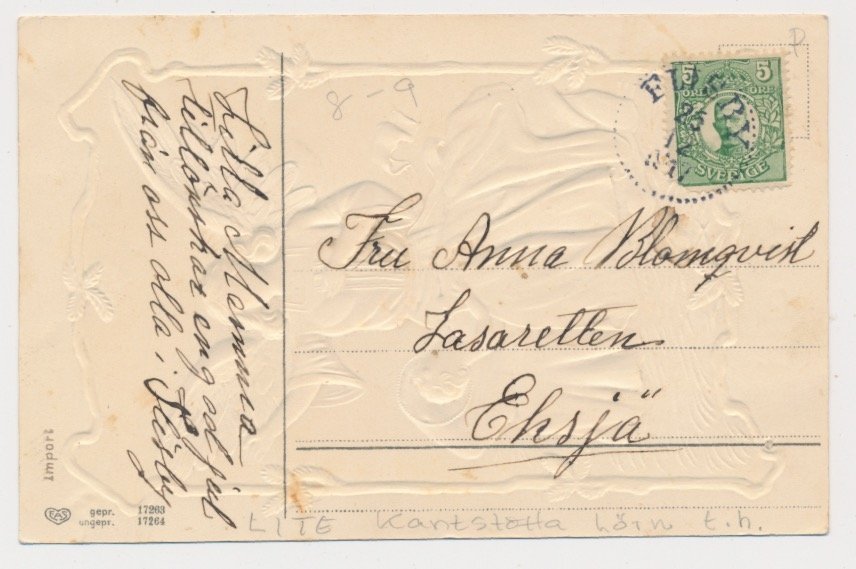 Lilla Mamma
tillönskas en god jul
från oss alla i Flisby
8-9
P
5 5
ÖRE ÖRE
SVERIGE
FLISBY
25
12
Fru Anna Blomqvist
Lasaretten
Eksjö
Import
EAS
gepr. 17263
ungepr. 17264
LITE Kantstötta hörn t.h.